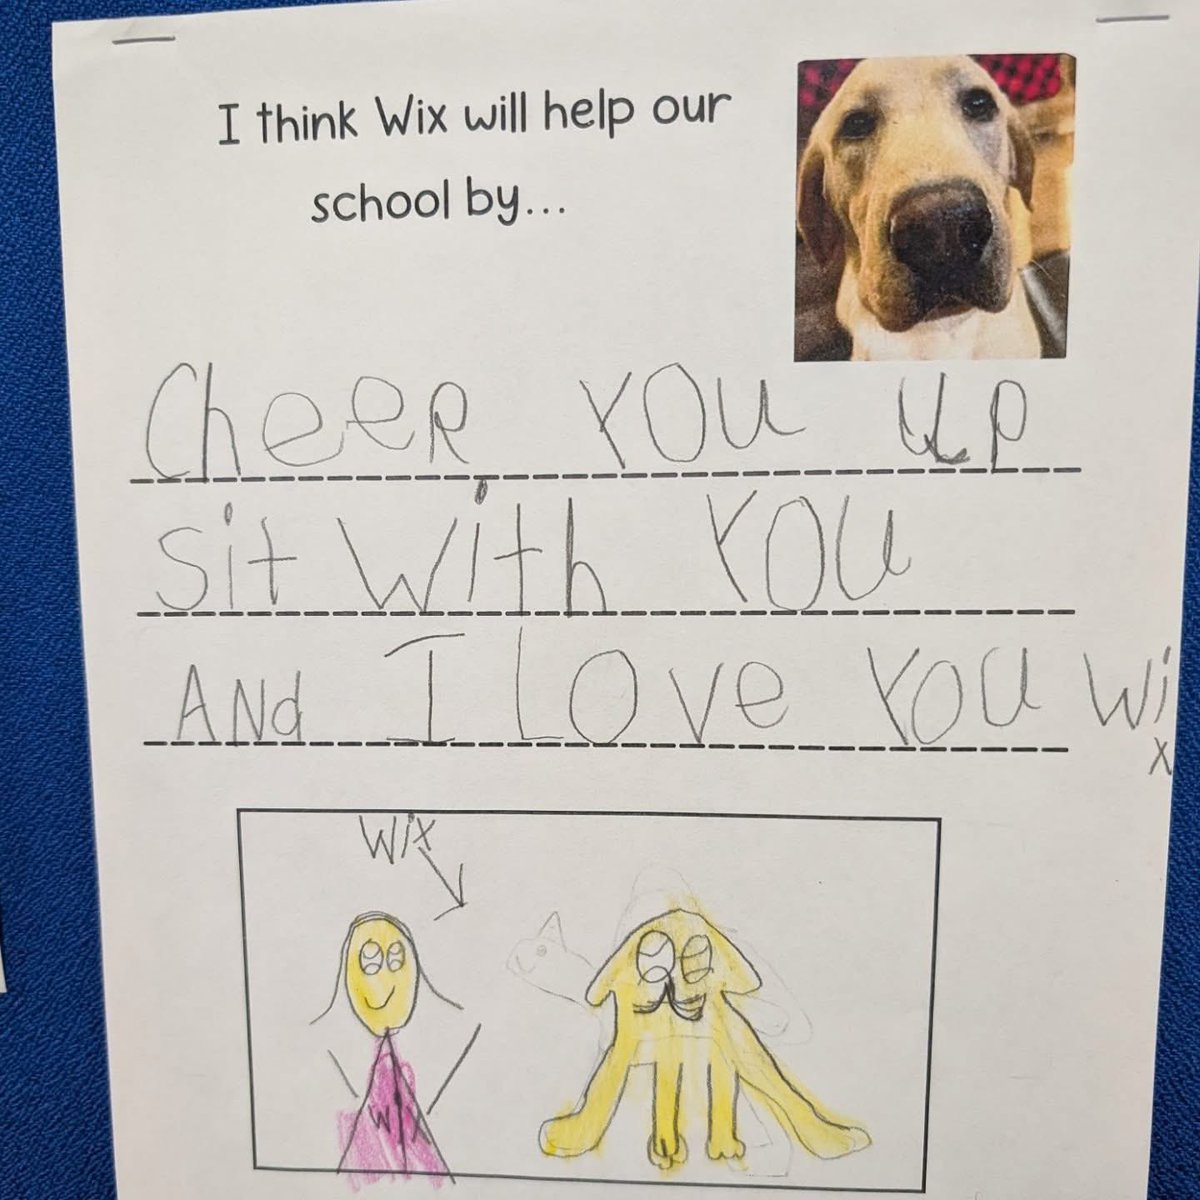 I think Wix will help our
school by...
CheeR YOu up
Sit with YOU
ANd I LOve YOU Wi
x
Wix
WIX